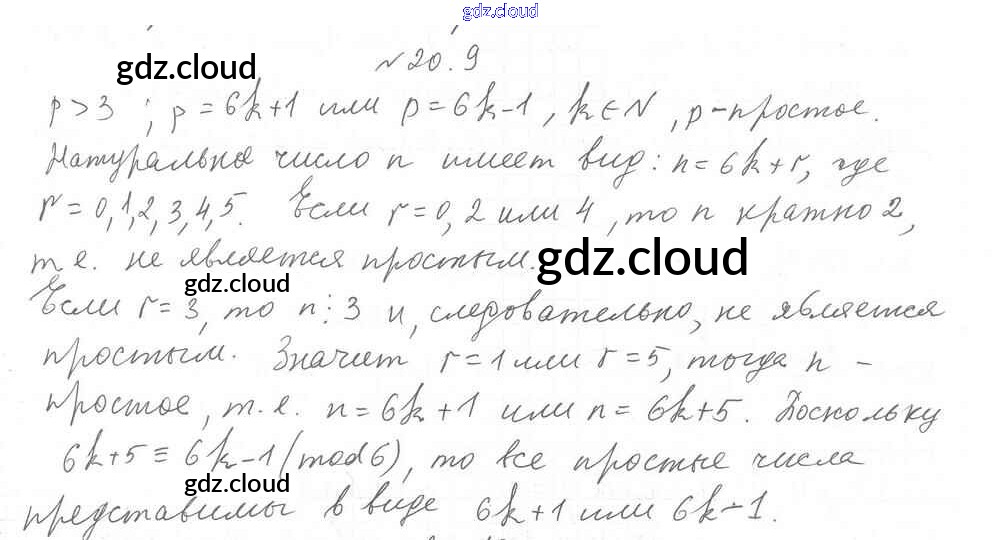 gdz.cloud
gdz.cloud
№20.9
p>3 ; p=6k+1 или p=6k-1, k∈N, p-простое.
Натуральное число n имеет вид: n=6k+r, где
r=0,1,2,3,4,5. Если r=0,2 или 4, то n кратно 2,
т.е. не является простым.
gdz.cloud
gdz.cloud
Если r=3, то n⋮3 и, следовательно, не является
простым. Значит r=1 или r=5, тогда n -
простое, т.е. n=6k+1 или n=6k+5. Поскольку
6k+5≡6k-1(mod6), то все простые числа
gdz.cloud
представимы в виде 6k+1 или 6k-1.